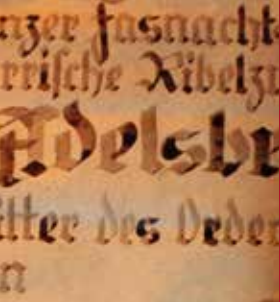 nzer Fasnacht
rrische Ribelzu
Adelsbe
itter des Orden
n